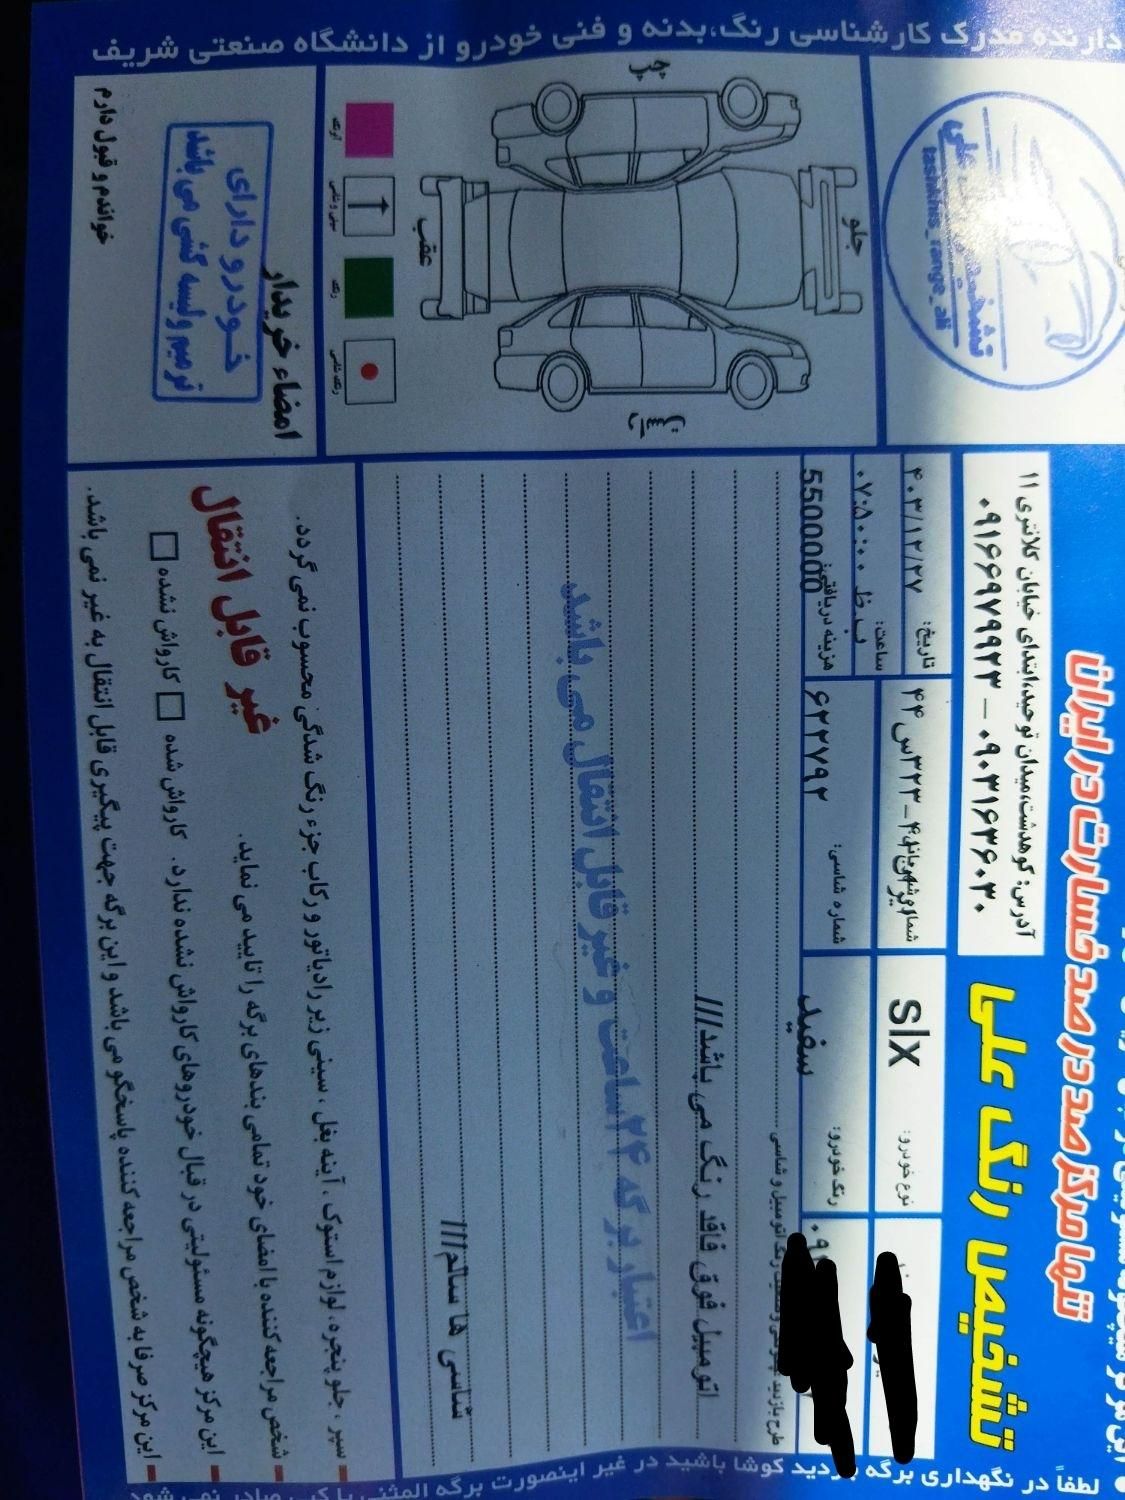 دارنده مدرک کارشناسی رنگ،بدنه و فنی خودرو از دانشگاه صنعتی شریف
تنها مرکز صد در صد خسارت در ایران
تشخیص رنگ علی
آدرس: کوهدشت،میدان توحید،ابتدای خیابان کلانتری ۱۱
۰۹۱۶۶۹۷۹۹۲۳ – ۰۹۰۳۱۶۳۶۰۳۰
tashkhis_range_ali
نوع خودرو:
slx
۳۲۳س۴۴
تاریخ:
۴۰۳/۱۲/۲۷
رنگ خودرو:
سفید
شماره شاسی:
۶۲۲۷۹۲
ساعت:
۰۷:۵۰:۰۰ ب.ظ
هزینه دریافتی:
5500000
اتومبیل فوق فاقد رنگ می باشد///
اعتبار برگه ۲۴ ساعت و غیر قابل انتقال می باشد
شاسی ها سالم///
چپ
جلو
عقب
راست
سپر ، جلو پنجره، لوازم استوک ، آینه بغل ، سینی زیر رادیاتور و رکاب جزء رنگ شدگی محسوب نمی گردد.
شخص مراجعه کننده با امضای خود تمامی بندهای برگه را تایید می نماید.
غیر قابل انتقال
این مرکز هیچگونه مسئولیتی در قبال خودروهای کارواش نشده ندارد. کارواش شده کارواش نشده
این مرکز صرفا به شخص مراجعه کننده پاسخگو می باشد و این برگه جهت پیگیری قابل انتقال به غیر نمی باشد.
امضاء خریدار
خودرو دارای
ترمیم و لیسه کشی می باشد
خواندم و قبول دارم
لطفاً در نگهداری برگه بازدید کوشا باشید در غیر اینصورت برگه المثنی یا کپی صادر نمی شود